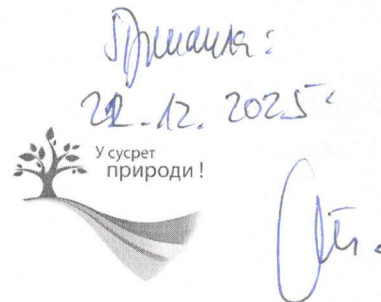 Примила:
22.12.2025.
У сусрет
природи!